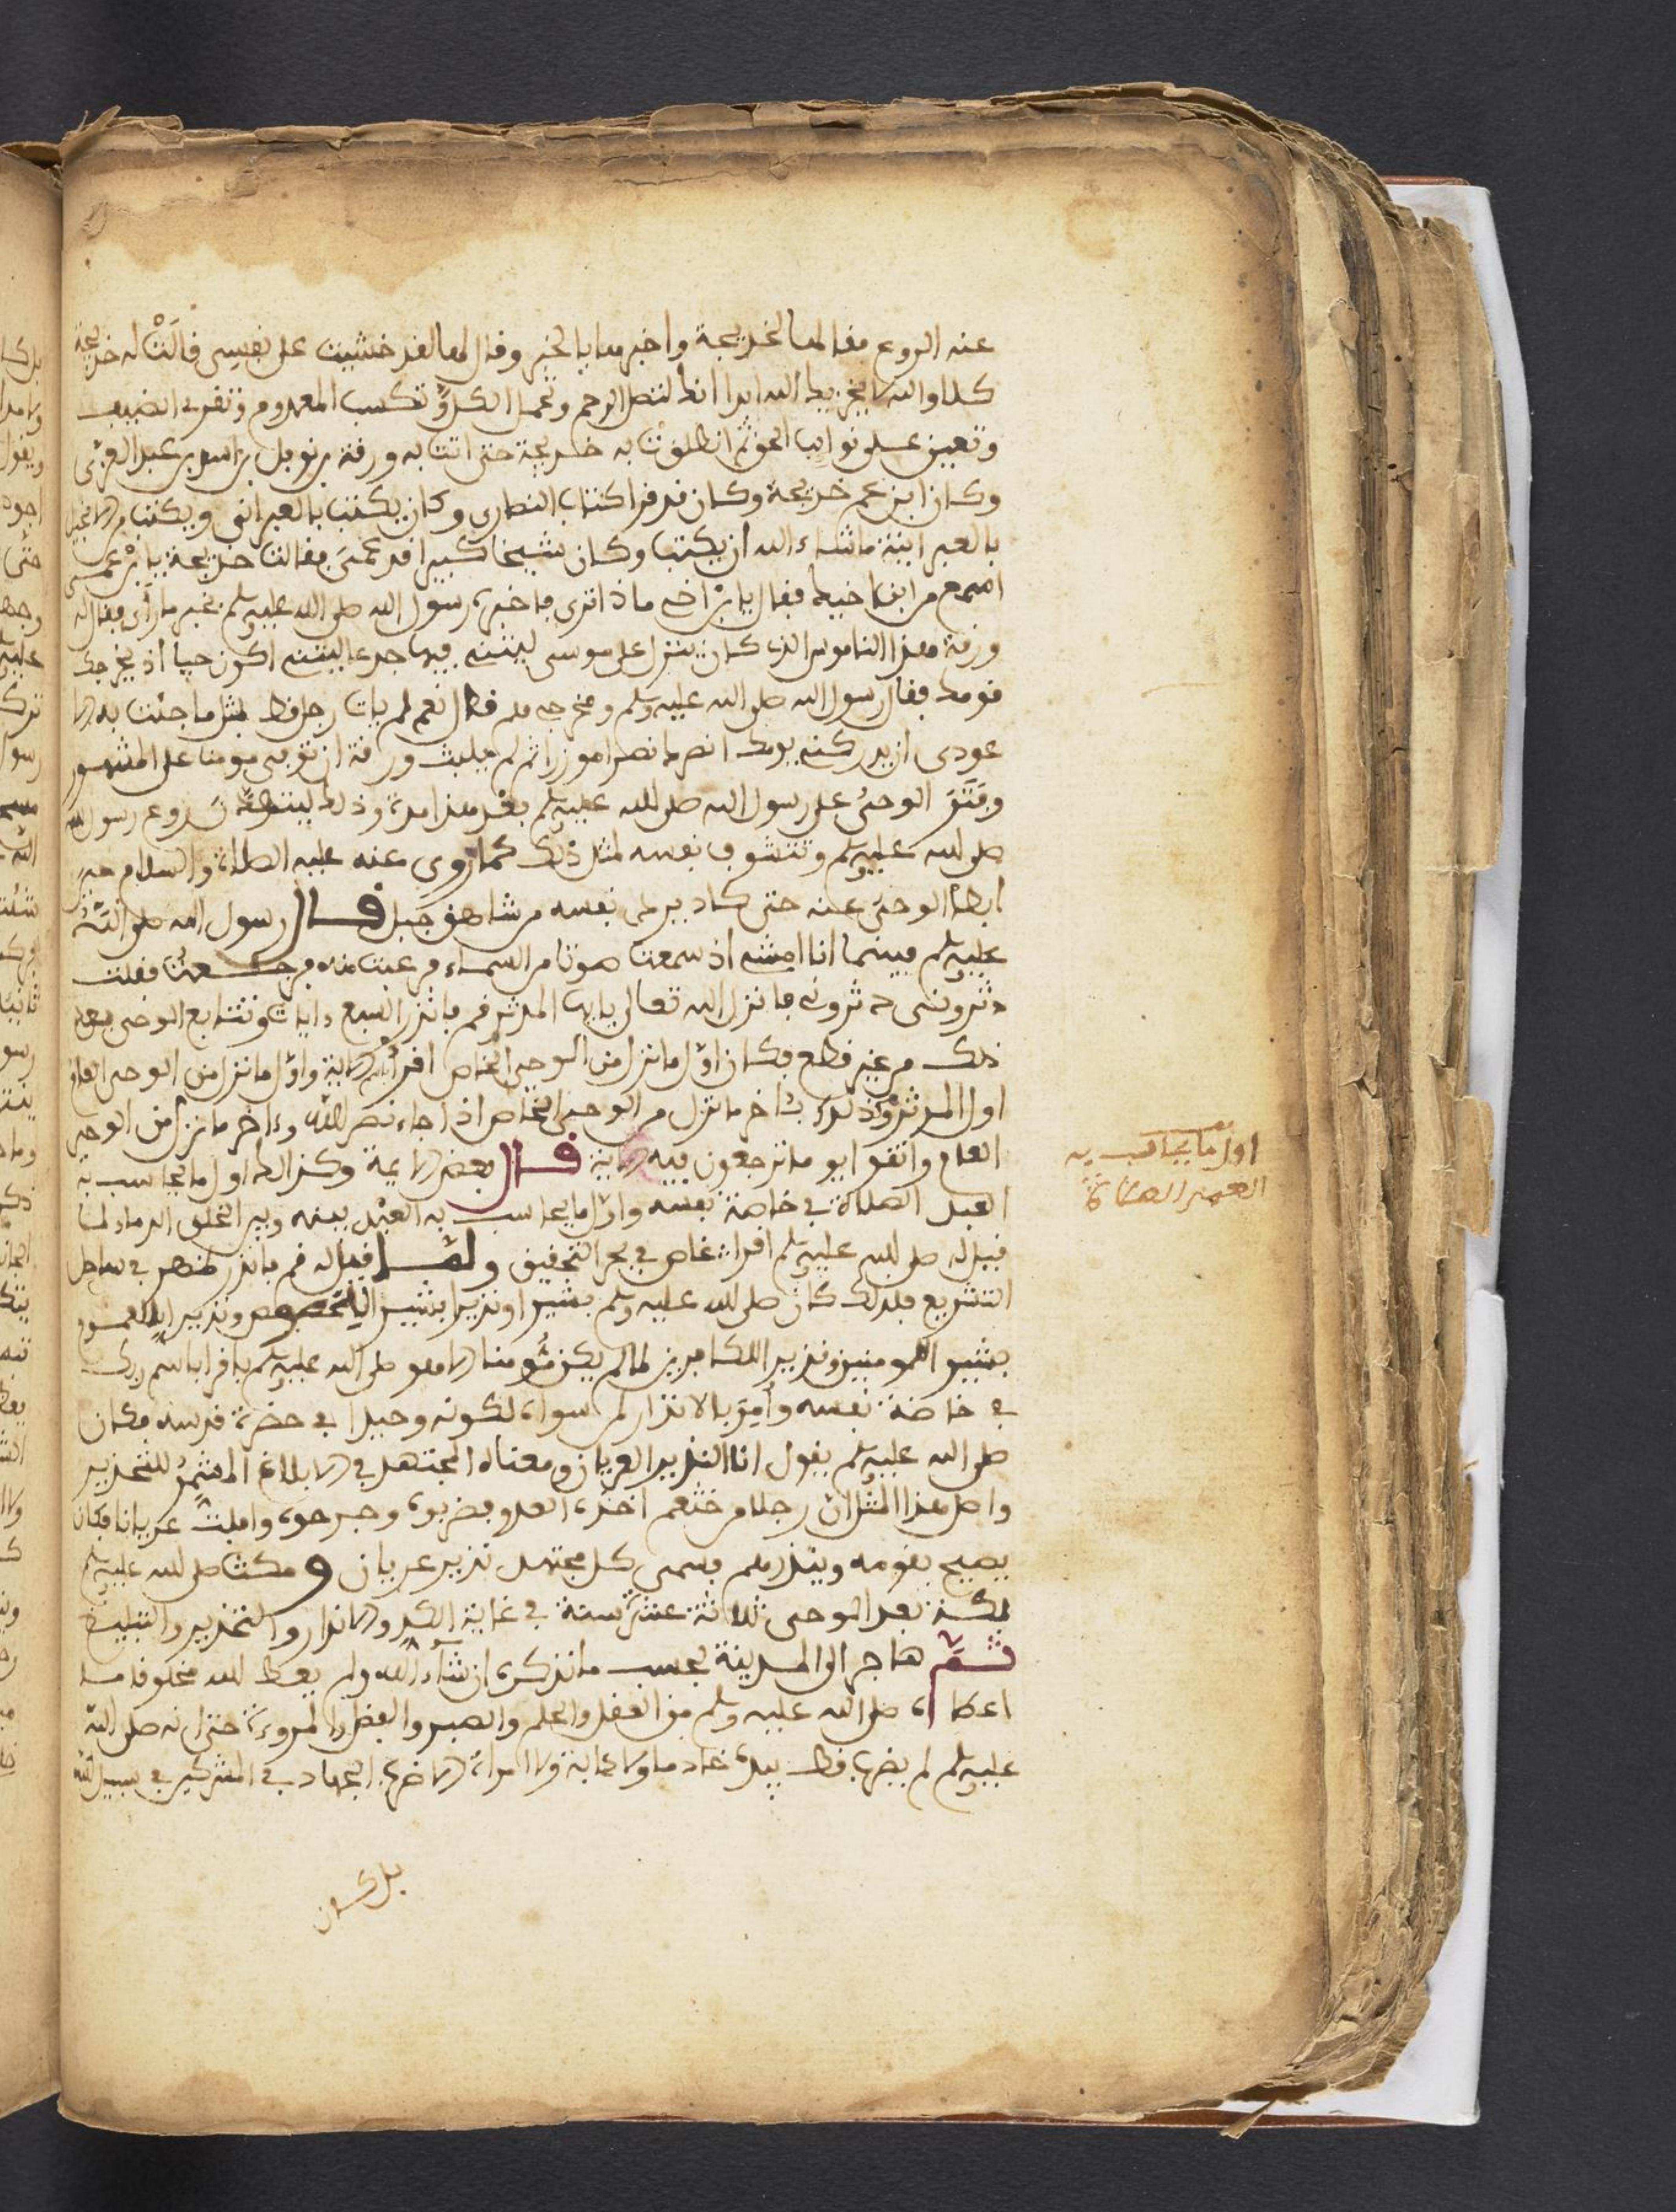 عنه الروع فقالها لخديجة واخبرها بالخبر وقال لها لقد خشيت على نفسي قالَتْ له خديجة
كلا والله لا يخزيك الله ابدا انك لتصل الرحم وتحمل الكلَّ وتكسب المعدوم وتقري الضيف
وتعين على نوايب الحق ثم انطلقت به خديجة حتى اتت به ورقة بن نوفل بن اسد بن عبد العزى
وكان ابن عم خديجة وكان قد قرا كتاب النصارى وكان يكتب بالعبراني ويكتب من الانجيل
بالعبرانية ما شاء الله ان يكتب وكان شيخا كبيرا قد عمى فقالت خديجة يا بن عمى
اسمع من ابن اخيك فقال يا بن اخى ماذا ترى فاخبره رسول الله صلى الله عليه وسلم بخبر ما رأى فقال له
ورقة هذا الناموس الذى كان ينزل على موسى ليتنى فيها جدعا ليتنى اكون حيا اذ يخرجك
قومك فقال رسول الله صلى الله عليه وسلم ومخرجي هم قال نعم لم يات رجل قط بمثل ما جئت به الا
عودى ان يدركنى يومك انصرك نصرا موزرا ثم لم يلبث ورقة ان توفي مومنا على المشهور
وفَتَرَ الوحىُ على رسول الله صلى الله عليه وسلم بعْد هذا مدة وذلك ليتطهّر روع رسول الله
صلى الله عليه وسلم وتتشوف نفسه لمثل ذلك كما روى عنه عليه الصلاة والسلام حين
ابطأ الوحى عنه حتى كاد يرمى نفسه من شاهق جبل قال رسول الله صلى الله
عليه وسلم فبينما انا امشى اذ سمعت صوتا من السماء فرعبت منه فرجعت فقلت
دثروني دثرونى فانزل الله تعالى يا ايها المدثر قم فانذر السبع ءايات وتتابع الوحى بعد
ذلك من غير قطع فكان اوّل ما نزل من الوحي الخاص اقرأ الاية واوّل ما نزل من الوحي العام
اول المدثر وكذلك ءاخر ما نزل من الوحي الخاص اذا جاء نصر الله وءاخر ما نزل من الوحي
العام واتقوا يوما ترجعون فيه الاية قال بعض الايمة وكذلك اول ما يحاسب به
العبد الصلاة في خاصة نفسه واوّل ما يحاسب به العبْد بينه وبين الخلق الدما ولما
قيل له صلى الله عليه وسلم اقرأ غاص في بحر التحقيق ولما قيل له قم فانذر ظهر في ساحل
التشريع فلذلك كان صلى الله عليه وسلم بشيرا ونذيرا بشيرا بالخصوص ونذيرا بالعموم
بشيرا للمومنين ونذيرا للكافرين لما لم يكن مُومنا الا هو صلى الله عليه وسلم باقرا باسم ربك
في خاصة نفسه وأُمِرَ بالانذار لمن سواه لكونه وحيدا في حضرة قدسه فكان
صلى الله عليه وسلم يقول انا النذير العريان ومعناه المجتهد في الابلاغ المشمِّرُ للتحذير
واصل هذا المثل ان رجلا من خثعم اخذه العدو فضربوه وجرحوه وافلت عريانا فكان
يصيح بقومه وينذرهم فسمى كل مجتهد نذير عريان ومكث صلى الله عليه وسلم
بمكة بعد الوحى ثلاثة عشر سنة في غاية الكد والانذار والتحذير والتبليغ
ثمَّ هاجر الى المدينة بحسب ما نذكره ان شاء الله ولم يعط الله مخلوقا ما
اعطاه صلى الله عليه وسلم من العقل والحلم والصبر والفضل والمروءة حتى انه صلى الله
عليه وسلم لم يضرب قط بيده خادما ولا دابة ولا امراة الا ضرب الجهاد في المشركين في سبيل الله
بل كان
اول ما يحاسب به
العبد الصلاة